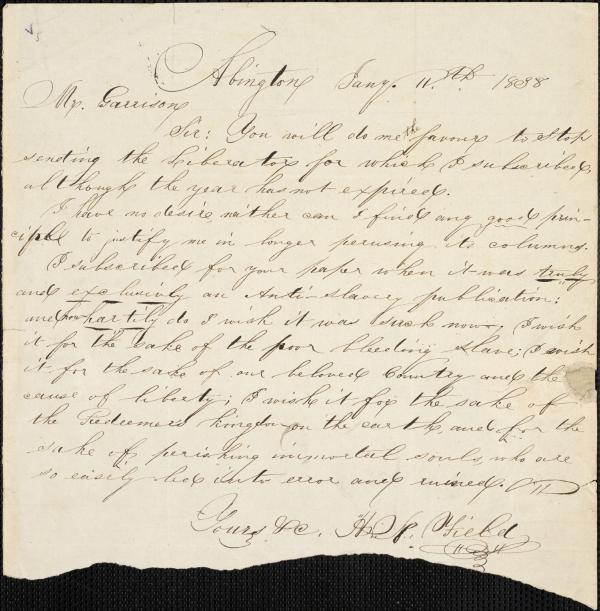 Abington Jany. 11.th 1838
Mr. Garrison
Sir: You will do me the favour to stop
sending the Liberator for which I subscribed,
although the year has not expired.
I have no desire, neither can I find any good prin-
ciple to justify me in longer perusing its columns.
I subscribed for your paper when it was truly
and exclusivly an Anti-slavery publication;
and how hartily do I wish it was such now. I wish
it for the sake of the poor bleeding slave; I wish
it for the sake of our beloved Country and the
cause of liberty; I wish it for the sake of
the Redeemers kingdom on the earth, and for the
sake of perishing immortal souls, who are
so easily led into error and ruined.
Yours &c. H. Field